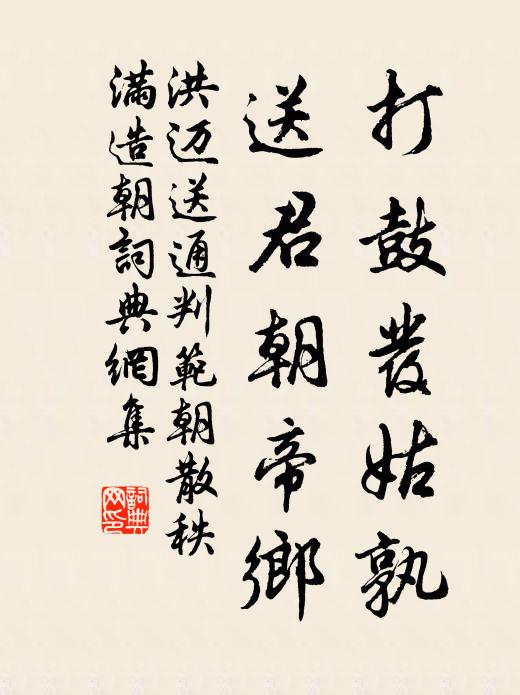 打鼓發姑孰
送君朝帝鄉
洪迈送通判範朝散秩
滿造朝詞典網集
詞典网印